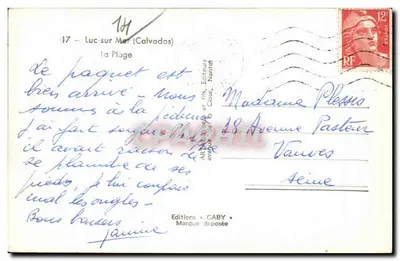 14
17 - Luc-sur Mer (Calvados)
La Plage
Le paquet est
bien arrivé - Nous
sommes à la
j'ai fait soigner
il avait raison de
se plaindre de ses
pieds, je lui coupais
mal les ongles -
Bons baisers
Janine
Editions "GABY"
Marque déposée
Madame Plessis
28 Avenue Pasteur
Vanves
Seine
12F
RF